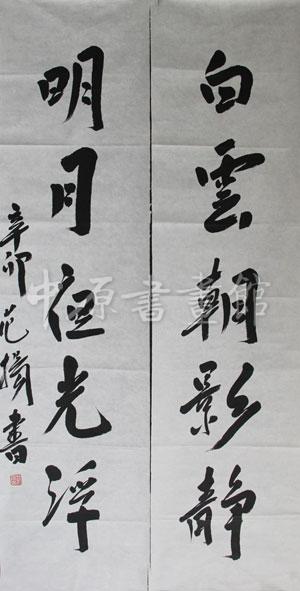 白雲朝影静
明月夜光浮
辛卯 范
書
中原書畫館